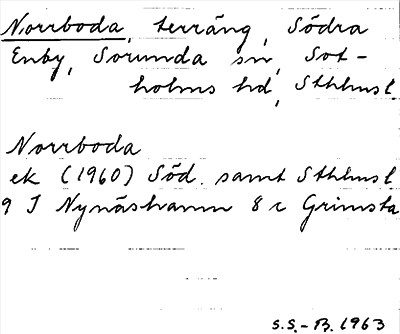 Norrboda, terräng, Södra
Enby, Sorunda sn, Sot-
holms hd, Sthlms l.
Norrboda
ek (1960) Söd. samt Sthlms l
9 I Nynäshamn 8 c Grimsta
S.S.-B. 1963